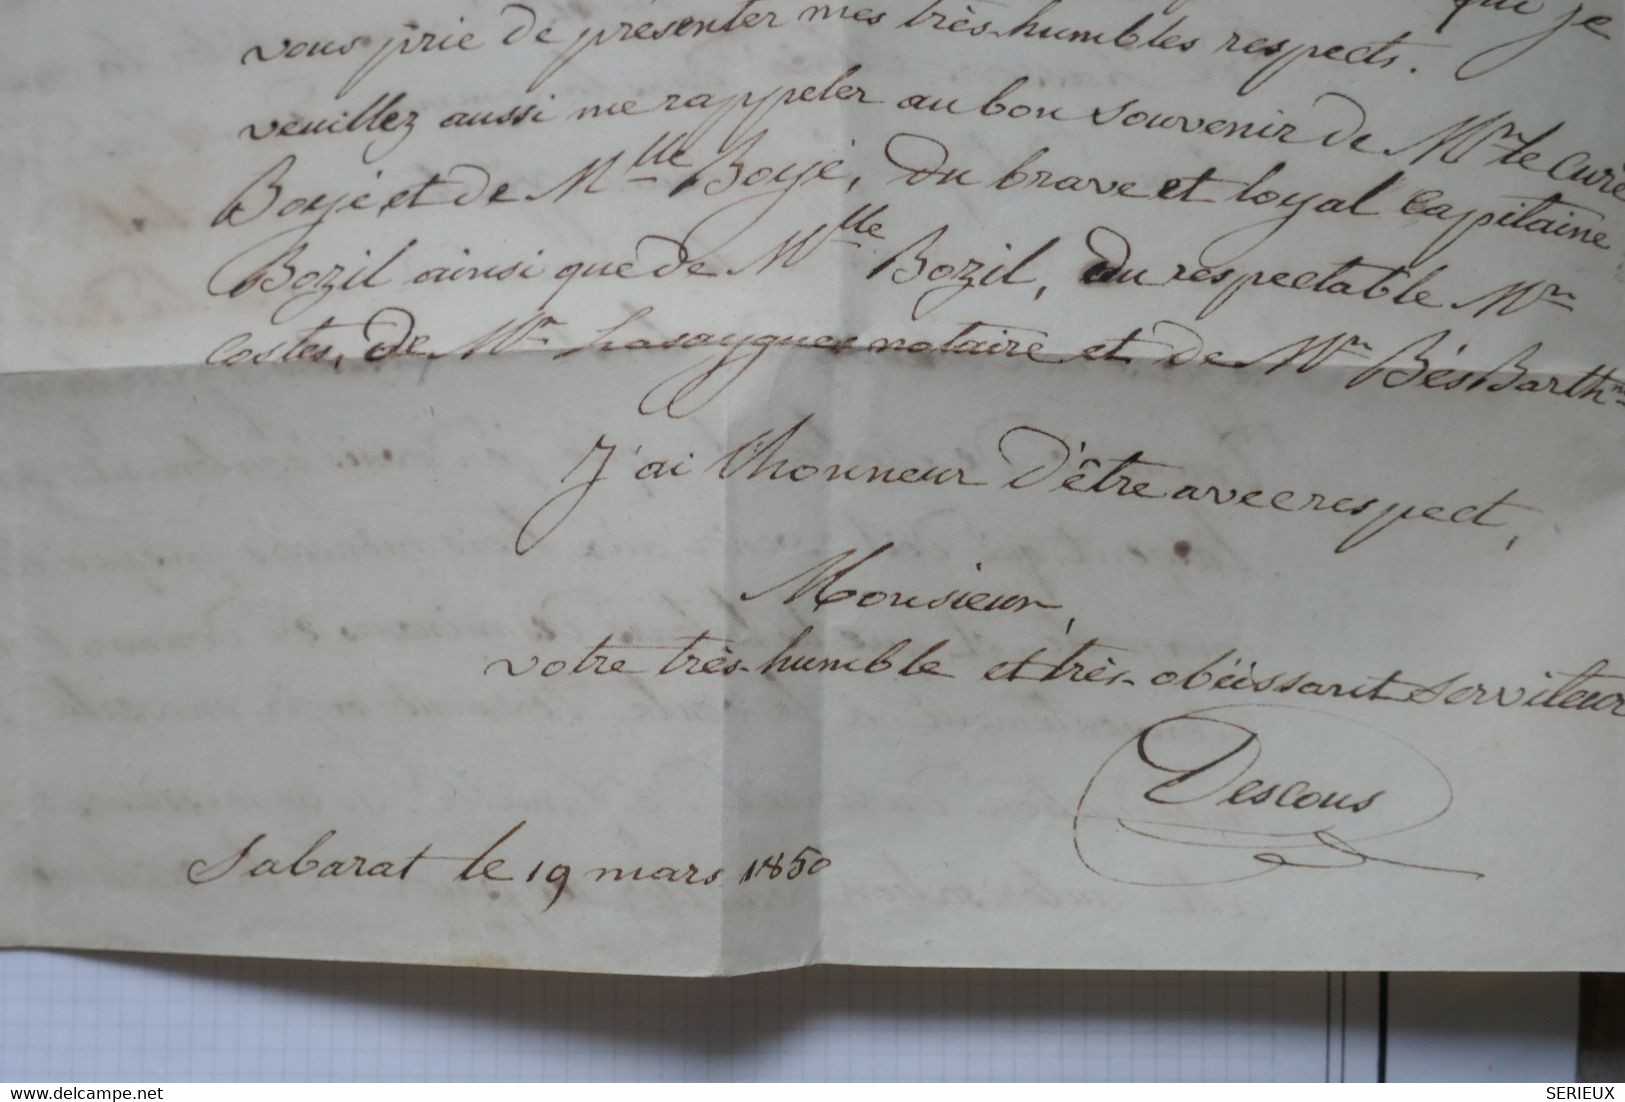 que je
vous prie de présenter mes très-humbles respects.
veuillez aussi me rappeler au bon souvenir de Mr le Curé
Boyé, et de Mlle Boyé, du brave et loyal capitaine
Bozil ainsi que de Mlle Bozil, du respectable Mr
Costes, de Mr Lasaygues notaire et de Mr Bés Barthmi
J'ai l'honneur d'être avec respect,
Monsieur,
votre très-humble et très-obéissant serviteur
Descous
Sabarat le 19 mars 1850
delcampe.net
SERIEUX